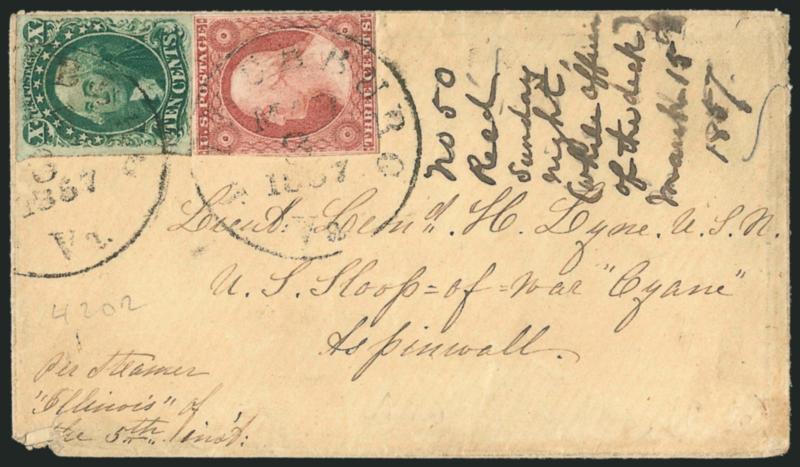 X U.S. POSTAGE X
TEN CENTS.
U.S. POSTAGE
THREE CENTS.
1857
Va.
CHBURG
MAR
3
1857
Va
No 50
Recd.
Sunday
night,
(while officer
of the deck)
March 15th
1857.
Lieut. Leond. H. Lyne. U.S.N.
U.S. Sloop=of=war "Cyane"
Aspinwall.
4202
Per Steamer
"Illinois" of
the 5th inst: